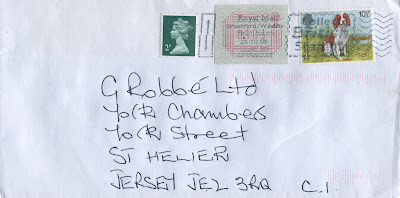 2P
Royal Mail
10½p
G Robbé Ltd
York Chambers
York Street
ST HELIER
JERSEY JE2 3RQ C.I.